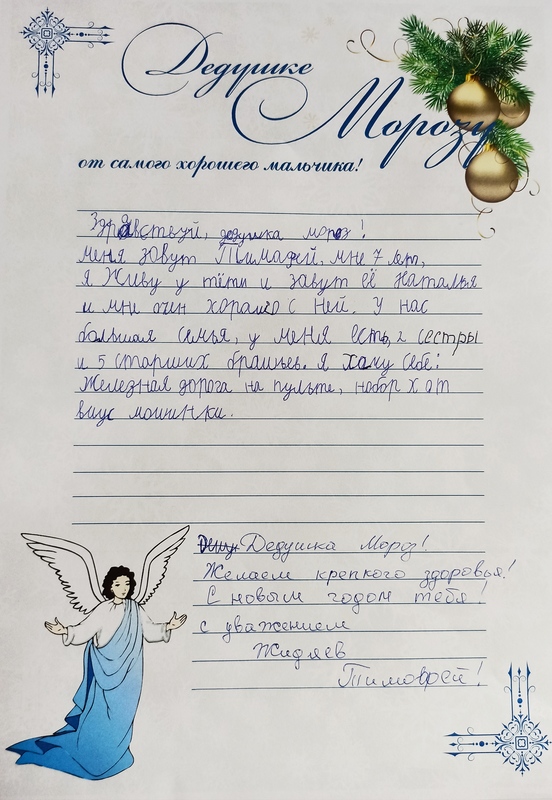 Дедушке
Морозу
от самого хорошего мальчика!
Здравствуй, дедушка мороз!
меня завут Тимафей, мне 7 лет,
я Живу у тёти и завут её Наталья
и мне очин харашо с ней. У нас
большая семья, у меня есть, 2 сестры
и 5 старших братьев. Я хачу себе:
Железная дорога на пульте, набор хот
виус машинки.
Дедушка Мороз!
Желаем крепкого здоровья!
С новым годом тебя!
с уважением
Жидяев
Тимофей!